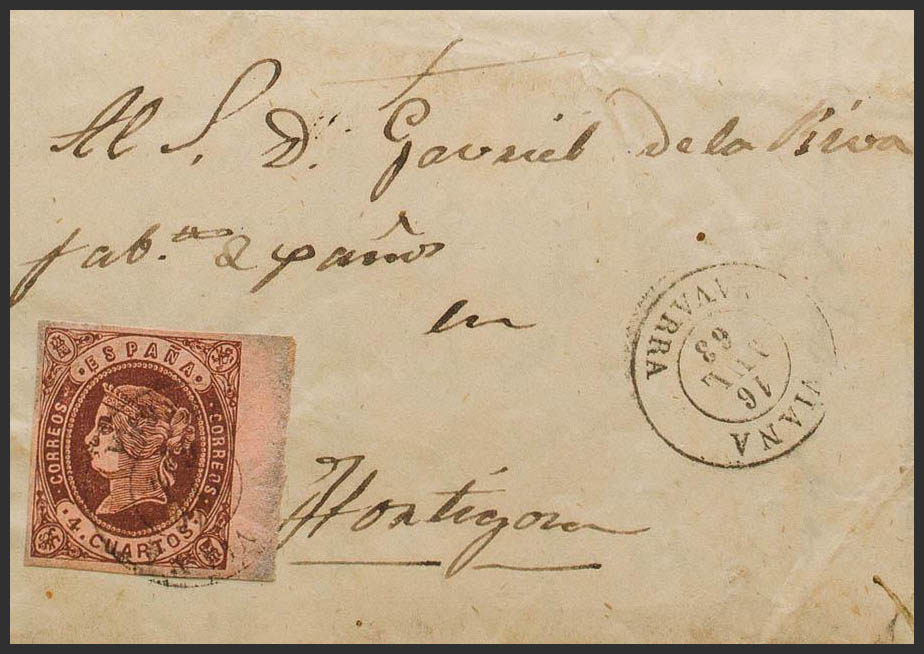 Al S. D. Gavriel de la Riva
fab.te de paños
en
Hortigosa
ESPAÑA
CORREOS
CORREOS
4. CUARTOS
VIANA
NAVARRA
16
JUL
63